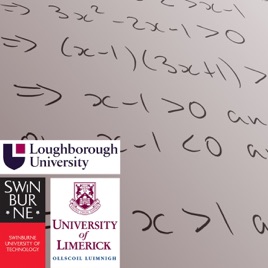 ⇒ 3x² - 2x - 1 > 0
⇒ (x-1)(3x+1) >
⇒ x-1 > 0 an
x-1 < 0 an
x > 1 a
Loughborough
University
SWIN
BUR
• NE •
SWINBURNE
UNIVERSITY OF
TECHNOLOGY
UNIVERSITY
of LIMERICK
OLLSCOIL LUIMNIGH